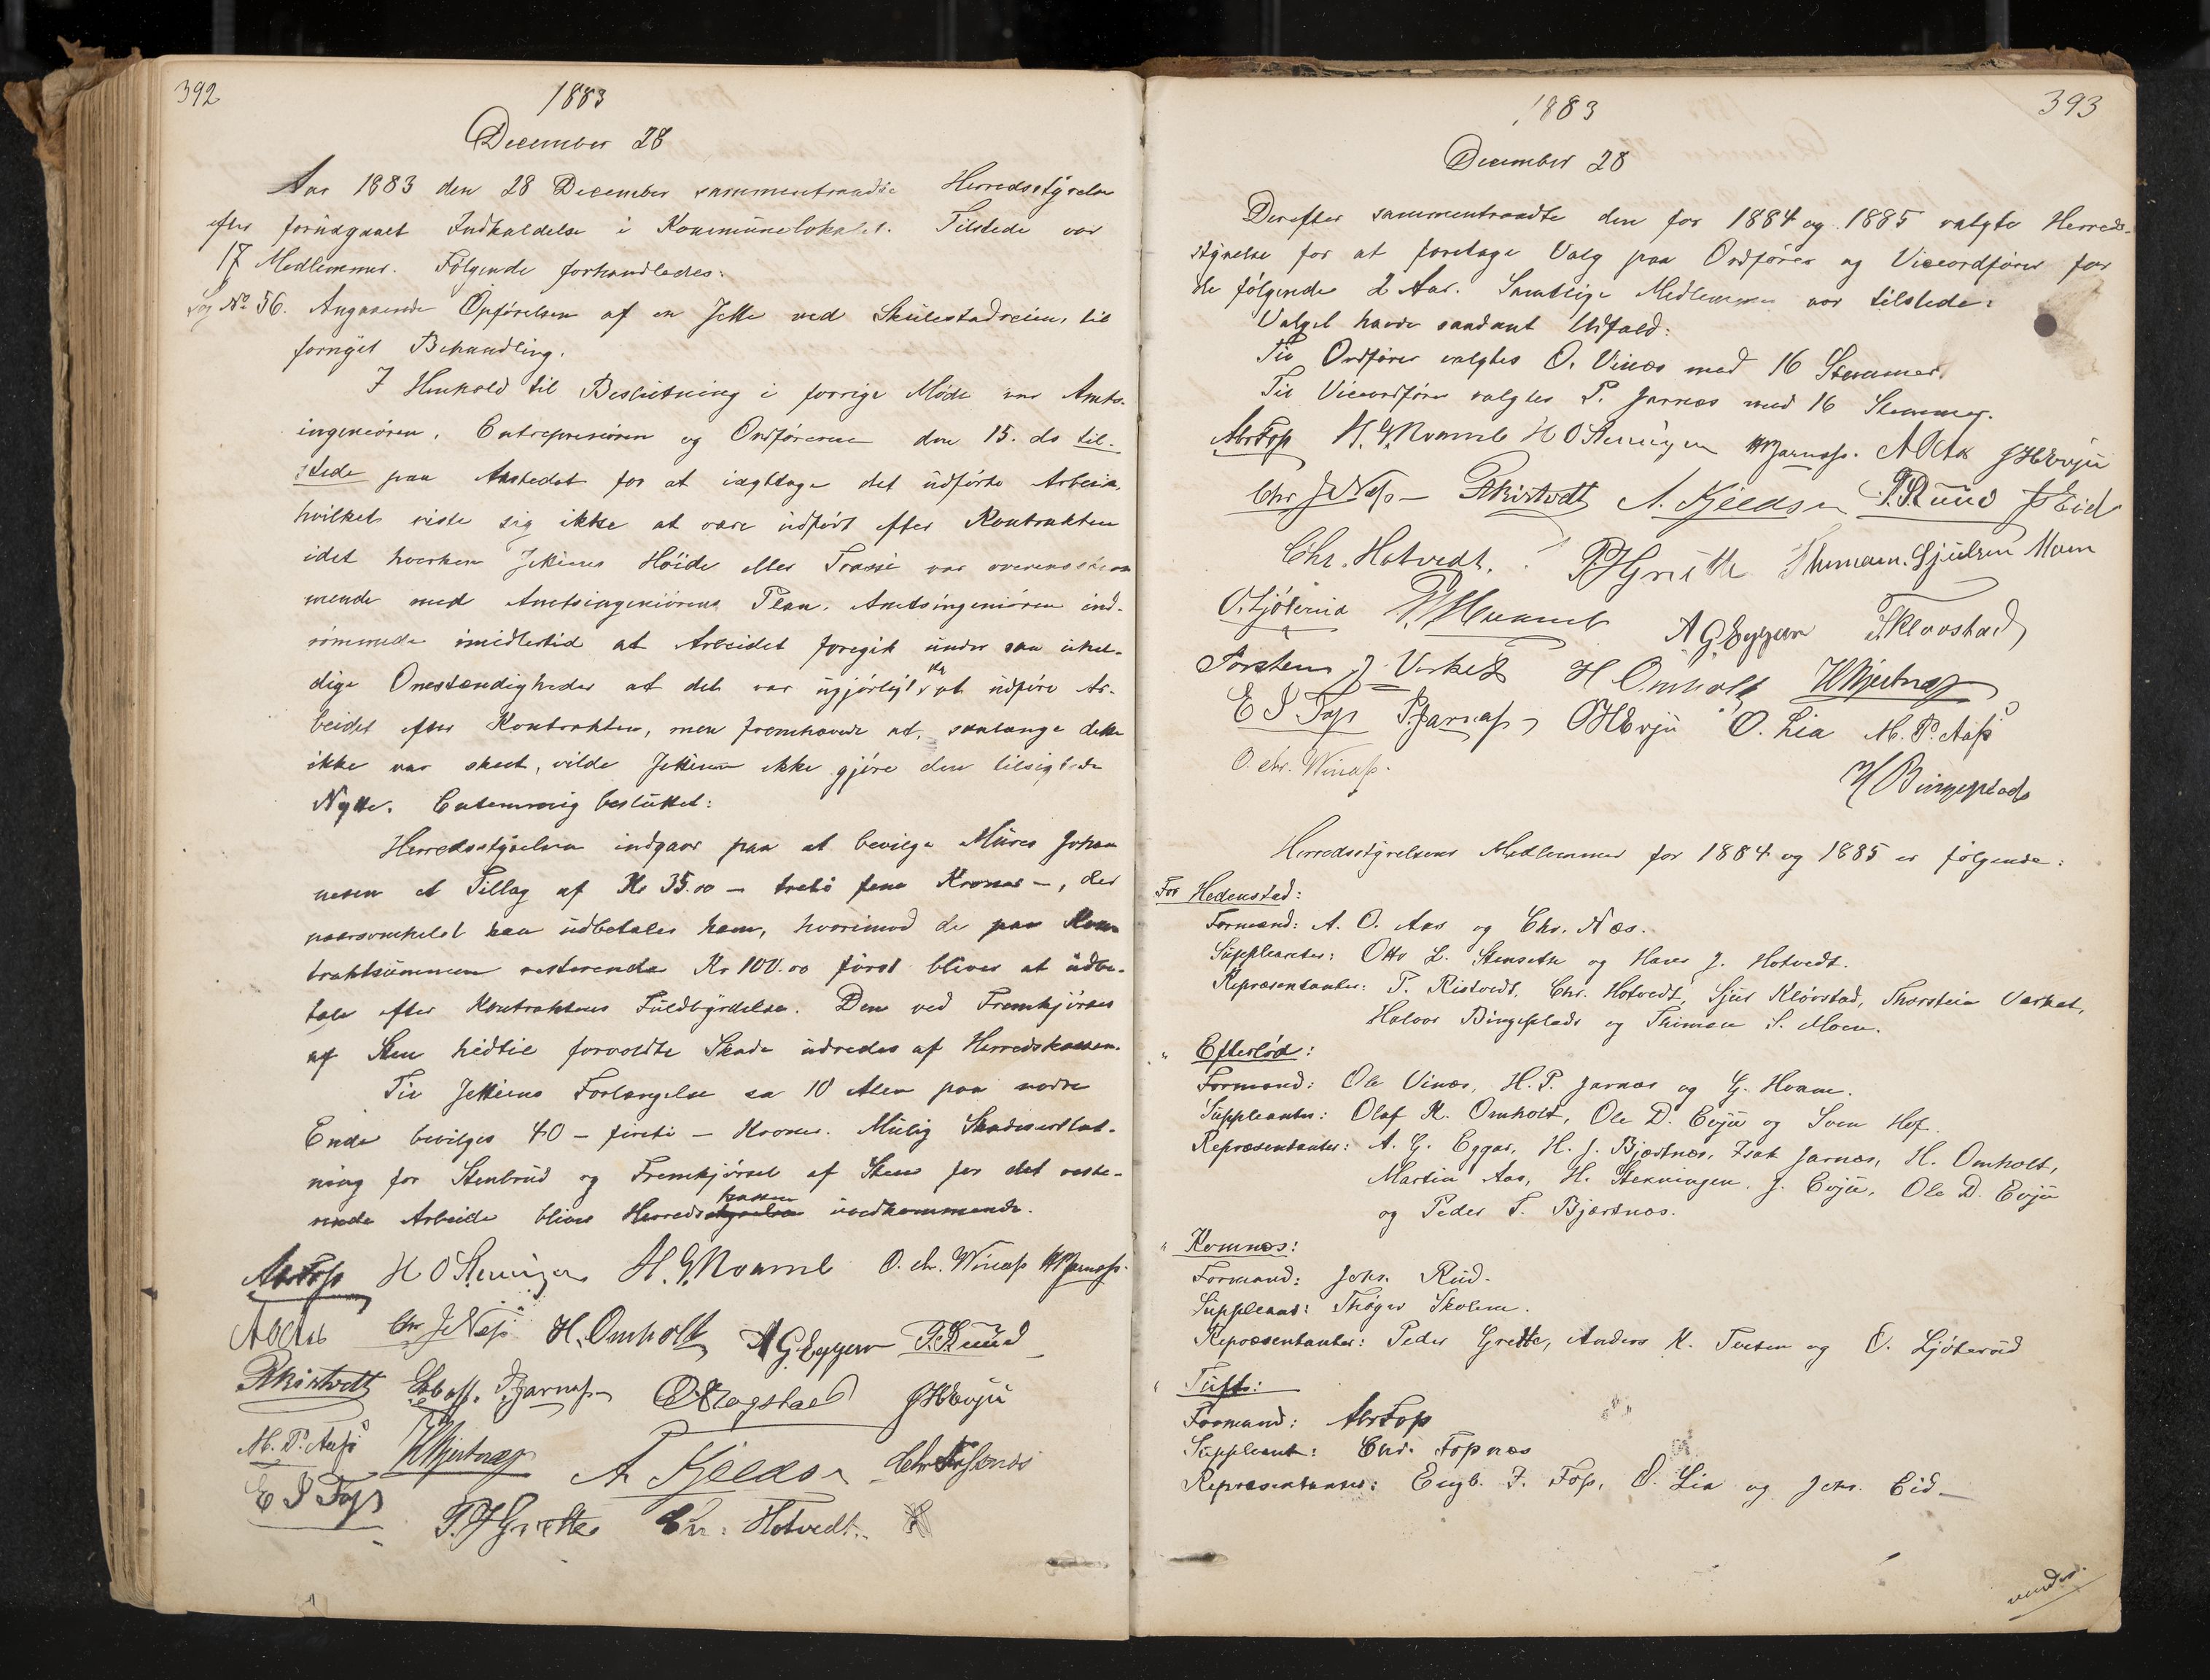 392
1883
December 28
Aar 1883 den 28 December sammentraadte Herredsstyrelsen
efter forudgaaet Indkaldelse i Kommunelokalet. Tilstede var
17 Medlemmer. Følgende forhandledes:
Sag No 56. Angaaende Opførelsen af en Jette ved Skulestadveien, til
fornyet Behandling.
I Henhold til Beslutning i forrige Møde var Amts-
ingeniøren, Entreprenøren og Ordføreren den 15. ds til-
stede paa Aastedet for at iagttage det udførte Arbeide,
hvilket viste sig ikke at være udført efter Kontrakten
idet hverken Jetteens Høide eller Trasse var overensstem
mende med Amtsingeniørens Plan. Amtsingeniøren ind-
rømmede imidlertid at Arbeidet foregik under saa uhel-
dige Omstændigheder at det var ugjørligt at udføre Ar-
beidet efter Kontrakten, men fremhævede at, saalænge dette
ikke var skeet, vilde Jetteen ikke gjøre den tilsigtede
Nytte. Enstemmig besluttet:
Herredsstyrelsen indgaar paa at bevilge Murer Johan
nesen et Tillæg af Kr 35.00 – treti fem Kroner –, der
paaranskelst kan udbetales ham, hvorimod de paa Kon
traktsummen resterende Kr 100.00 først bliver at udbe-
tale efter Kontraktens Fuldbyrdelse. Den ved Fremkjørsel
af Sten hidtil forvoldte Skade udredes af Herredskassen.
Til Jetteens Forlængelse ca 10 Alen paa nedre
Ende bevilges 40 – fireti – Kroner. Mulig Skadeserstat-
ning for Stenbrud og Fremkjørsel af Sten for det reste-
rende Arbeide bliver Herredsstyrelsen kassen uvedkommende.
Abr Foss H O Stenningen H. G. Hvamb O. Chr. Winæss HPJarnæss.
A O Aas Chr J Næss H. Omholt A G Eggar J. S. Ruud
P Ristvedt P Jarnæss O Skragstad J H Evju
M. P. Aass H Bjertnæss A Kjeldsen Chr Fossnæs
E I Foss P. H Grette Chr: Hotvedt.
393
1883
December 28
Derefter sammentraadte den for 1884 og 1885 valgte Herreds-
styrelse for at foretage Valg paa Ordfører og Viceordfører for
de følgende 2 Aar. Samtlige Medlemmer var tilstede:
Valget havde saadant Udfald:
Til Ordfører valgtes O. Vinæs med 16 Stemmer.
Til Viceordfører valgtes P. Jarnæs med 16 Stemmer.
Abr Foss H. G. Hvamb H O Stenningen HPJarnæss. A O Aas J H Evju
Chr J Næss – P Ristvedt A. Kjeldsen J. S. Ruud J Eid
Chr. Hotvedt. P H Grette Thimann. Sjulsen Moen
O. Ljøterud P. Hvamb A G Eggar S Kløvstad
Torsten J. Verket H Omholt H Bjertnæs
E I Foss P. Jarnæss O H Evju O. Lia M. P. Aass
O. Chr. Winæss.
H Bingeplads
Herredsstyrelsens Medlemmer for 1884 og 1885 er følgende:
For Hedenstad:
Formænd: A. O. Aas og Chr. Næs.
Suppleanter: Otto L. Stensets og Hans J. Hotvedt.
Repræsentanter: P. Ristvedt, Chr. Hotvedt, Sjur Kløvstad, Thorstein Værket,
Halvor Bingeplads og Thimann S. Moen.
" Efteløt:
Formænd: Ole Vinæs, H. P. Jarnæs og G. Hvam.
Suppleanter: Olaf K. Omholt, Ole D. Evju og Sven Hof.
Repræsentanter: A. G. Eggar, H. J. Bjærtnæs, Isak Jarnæs, H. Omholt,
Martin Aas, H. Stenningen, J. Evju, Ole D. Evju
og Peder T. Bjærtnæs.
" Komnæs:
Formand: Johs. Rud.
Suppleant: Thøger Skolem.
Repræsentanter: Peder Grette, Anders K. Teksen og O. Ljøterud
" Tufts:
Formand: Abr Foss
Suppleant: Chr. Fossnæs
Repræsentanter: Engb. I. Foss, O. Lia og Johs. Eid –
vendes.